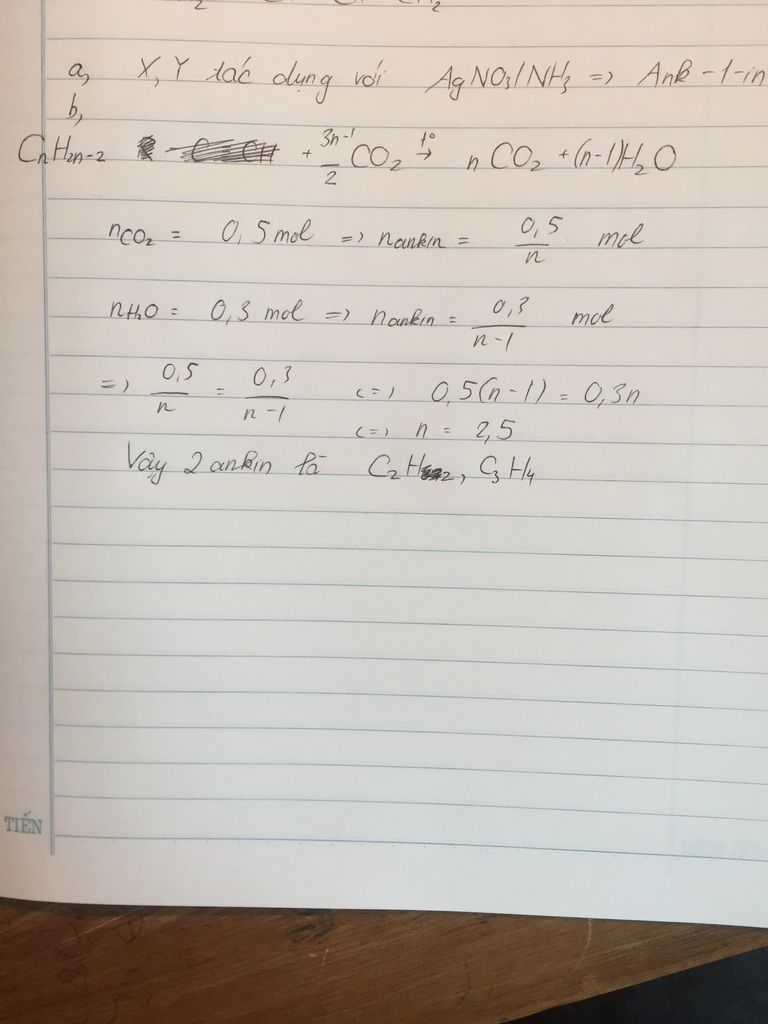 a, X, Y tác dụng với AgNO3/NH3 => Ank-1-in
b,
CnH2n-2 + 3n-1/2 CO2 t°→ n CO2 + (n-1)H2O
nCO2 = 0,5 mol => nankin = 0,5/n mol
nH2O = 0,3 mol => nankin = 0,3/n-1 mol
=> 0,5/n = 0,3/n-1 <=> 0,5(n-1) = 0,3n
<=> n = 2,5
Vậy 2 ankin là C2H2, C3H4
TIẾN